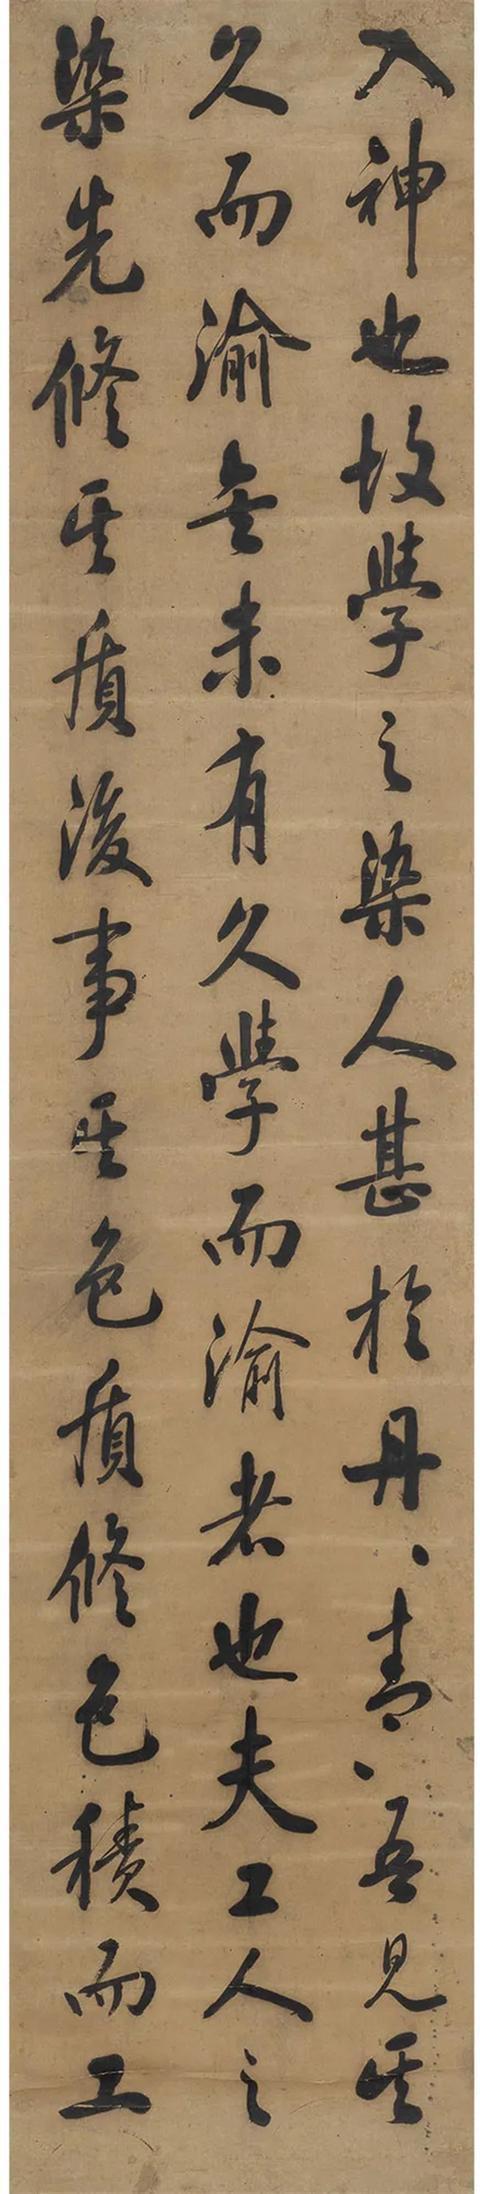 入神也故學之染人甚於丹〻青〻吾見其
久而渝矣未有久學而渝者也夫工人之
染先修其質後事其色質修色積而工